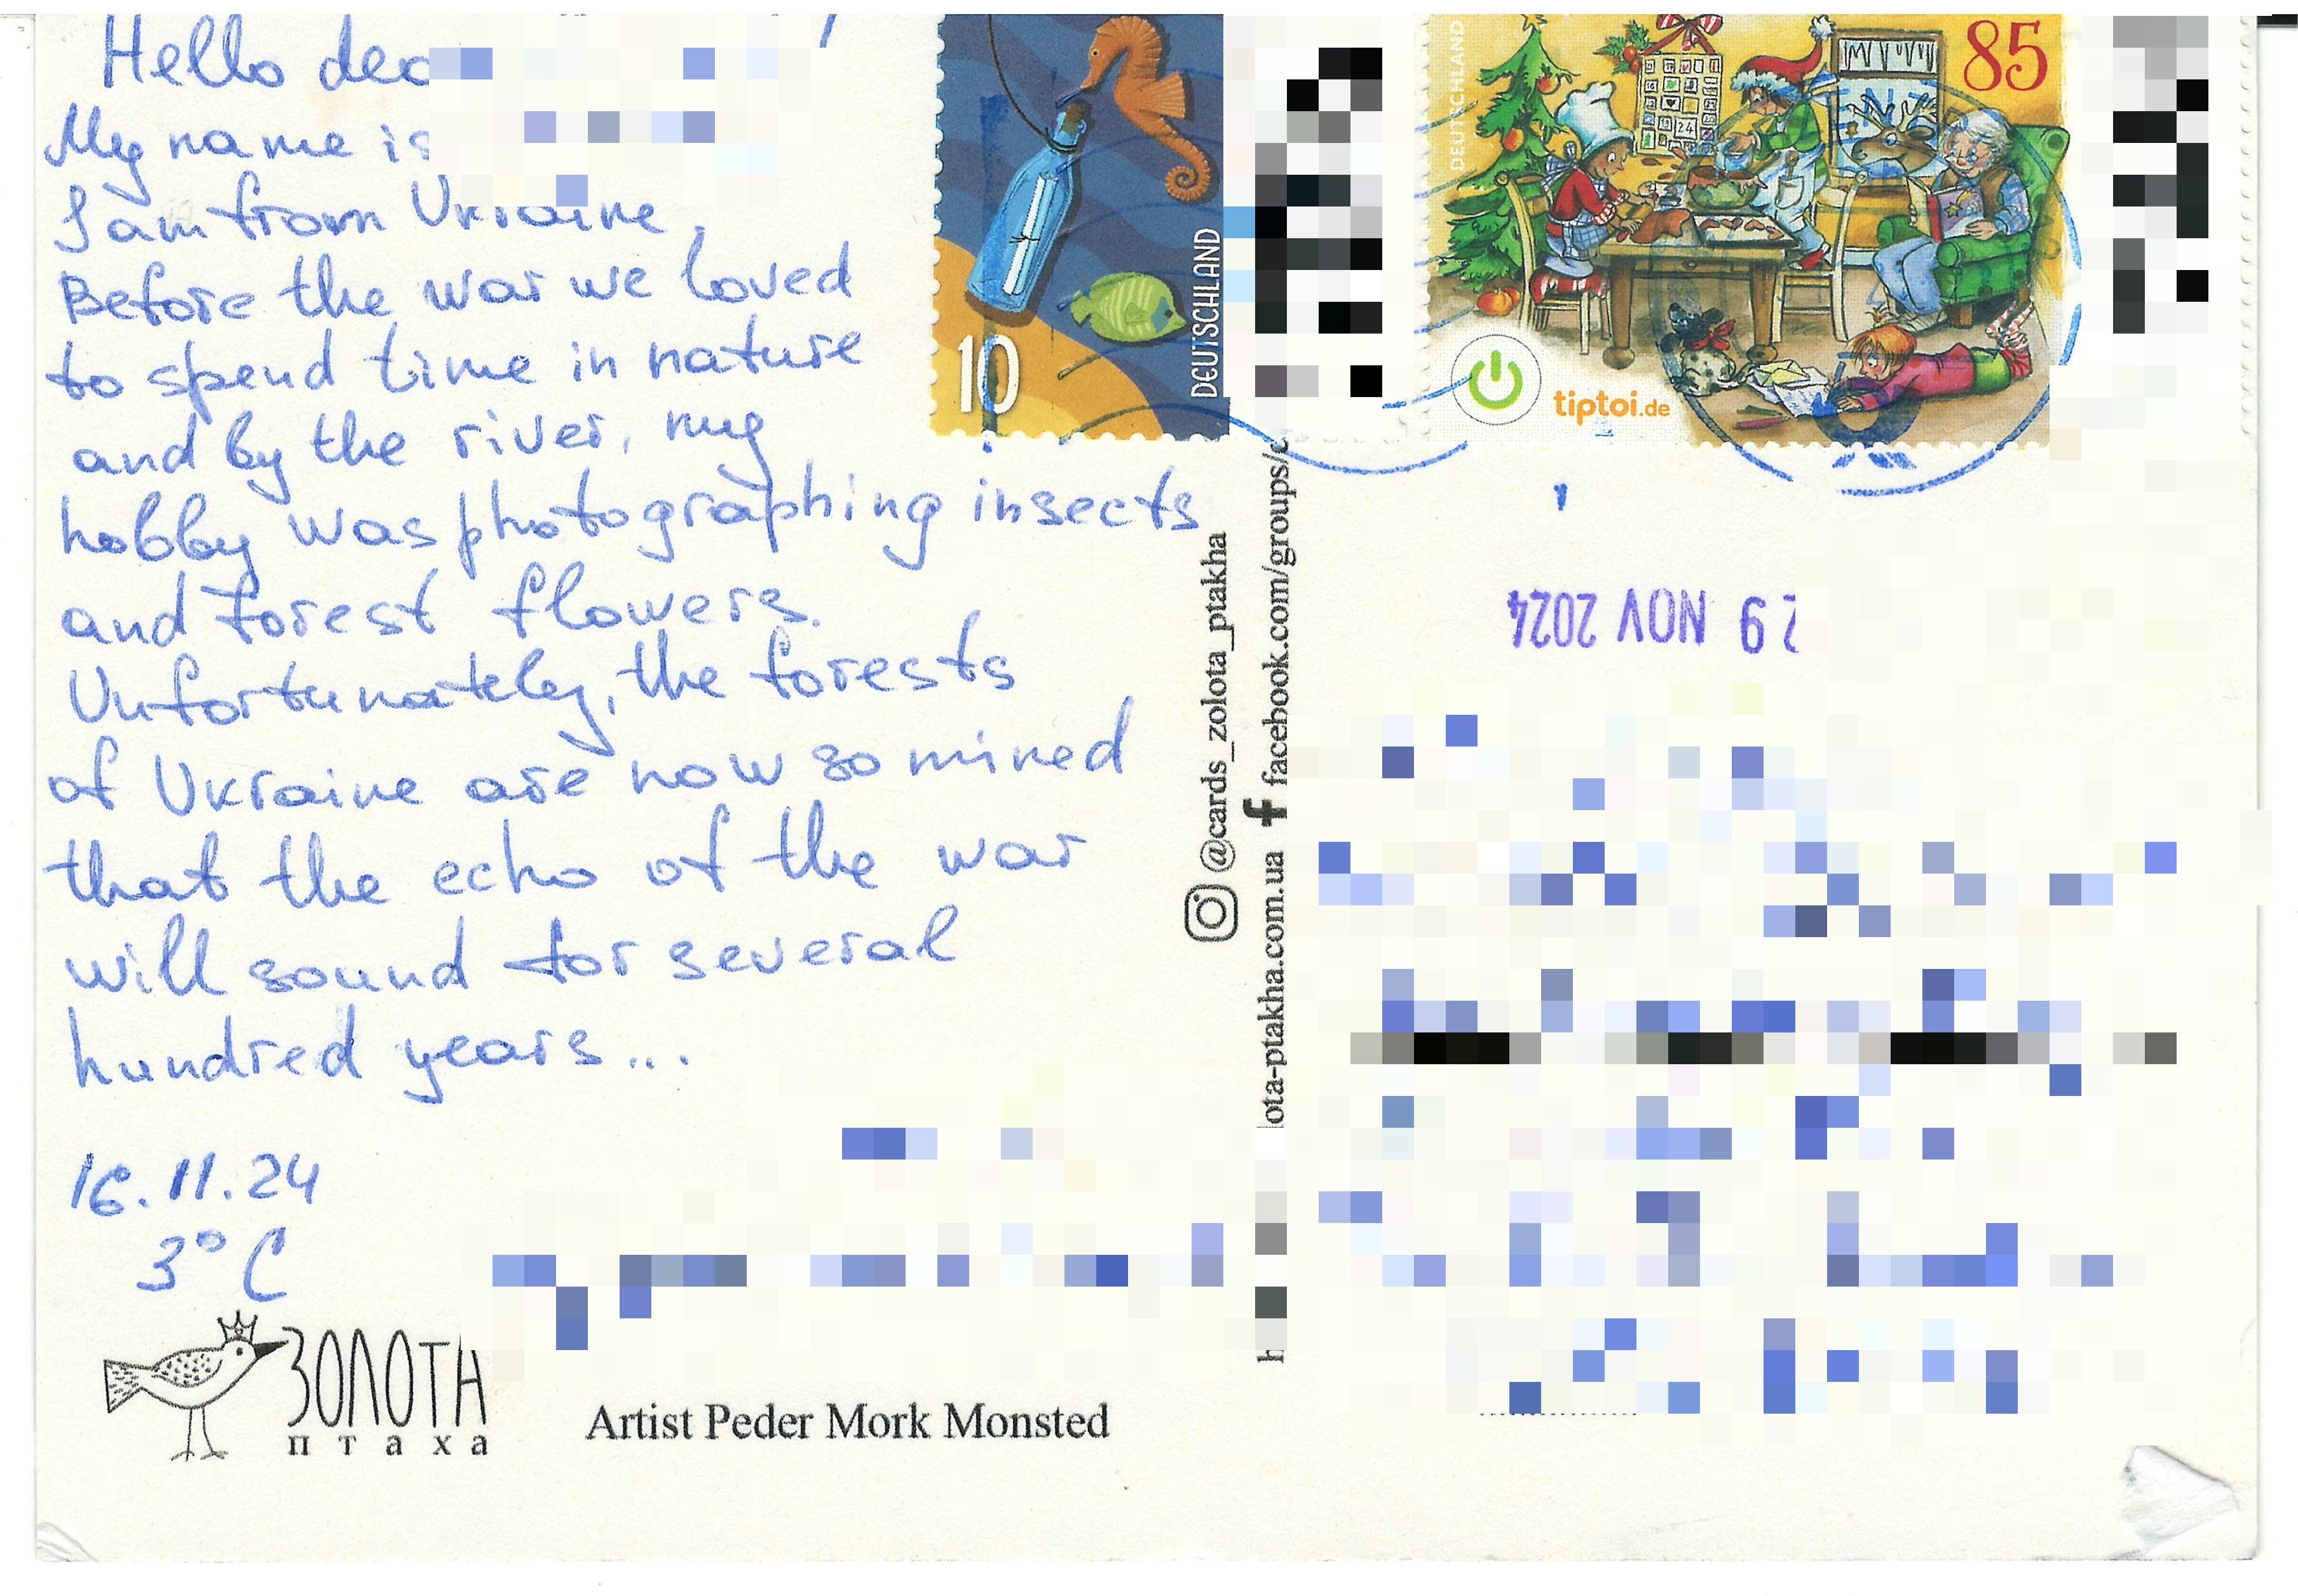 Hello dea
My name is
I am from Ukraine.
Before the war we loved
to spend time in nature
and by the river, my
hobby was photographing insects
and forest flowers.
Unfortunately, the forests
of Ukraine are now so mined
that the echo of the war
will sound for several
hundred years...
16.11.24
3°C
ЗОЛОТА
птаха
Artist Peder Mork Monsted
@cards_zolota_ptakha
facebook.com/groups/
lota-ptakha.com.ua
h
10
DEUTSCHLAND
DEUTSCHLAND
85
24
tiptoi.de
29 NOV 2024